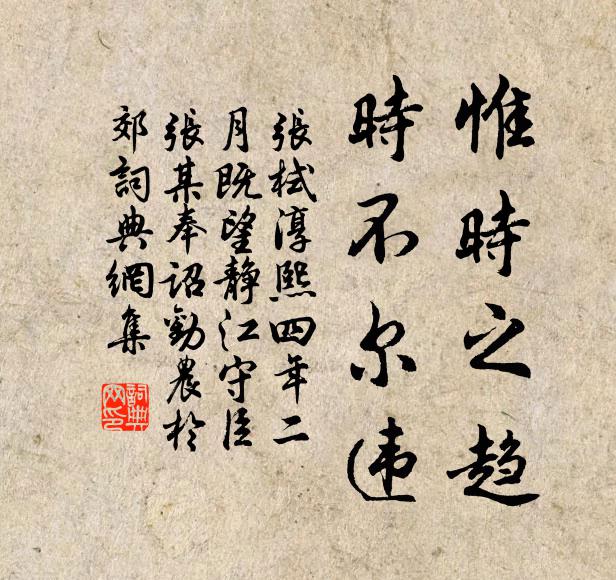 惟時之趋
時不尔违
張栻淳熙四年二
月既望靜江守臣
張某奉詔勸農於
郊詞典網集
詞典
网印